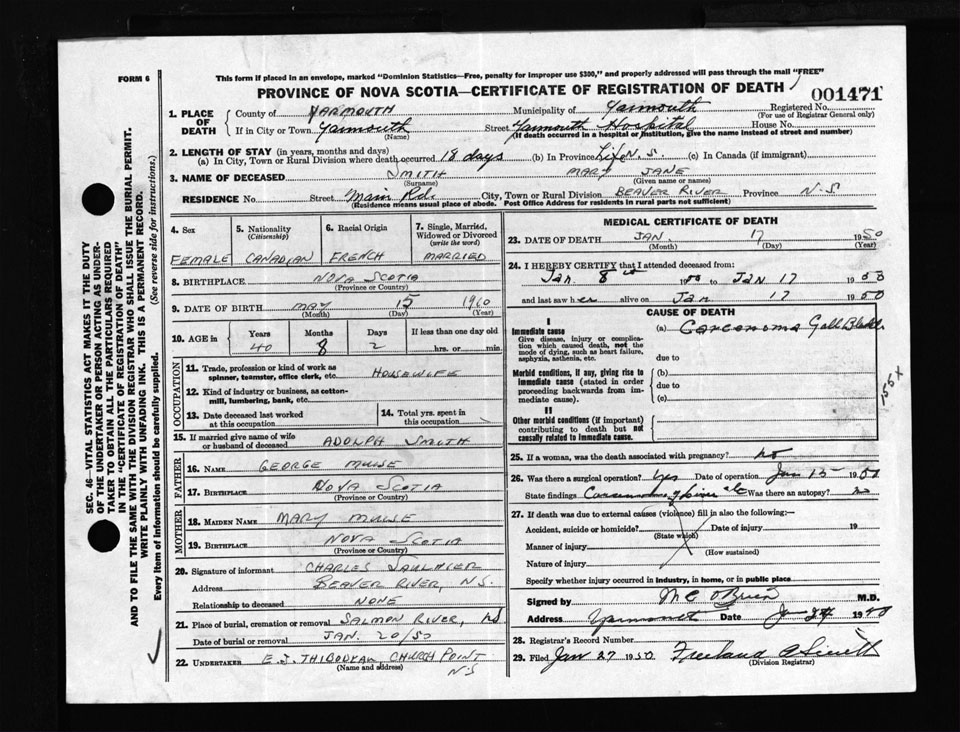 FORM 6
This form if placed in an envelope, marked "Dominion Statistics—Free, penalty for improper use $300," and properly addressed will pass through the mail "FREE"
PROVINCE OF NOVA SCOTIA—CERTIFICATE OF REGISTRATION OF DEATH
001471
1. PLACE OF DEATH
County of YARMOUTH Municipality of Yarmouth Registered No.
(For use of Registrar General only)
If in City or Town Yarmouth Street Yarmouth Hospital House No.
(Name) (If death occurred in a hospital or institution, give the name instead of street and number)
2. LENGTH OF STAY (in years, months and days)
(a) In City, Town or Rural Division where death occurred 18 days (b) In Province Life N.S. (c) In Canada (if immigrant)
3. NAME OF DECEASED SMITH MARY JANE
(Surname) (Given name or names)
RESIDENCE No. Street Main Rd. City, Town or Rural Division BEAVER RIVER Province N.S
(Residence means usual place of abode. Post Office Address for residents in rural parts not sufficient)
4. Sex 5. Nationality (Citizenship) 6. Racial Origin 7. Single, Married, Widowed or Divorced (write the word)
FEMALE CANADIAN FRENCH MARRIED
8. BIRTHPLACE NOVA SCOTIA
(Province or Country)
9. DATE OF BIRTH MAY 15 1910
(Month) (Day) (Year)
10. AGE in Years Months Days If less than one day old
40 8 2 hrs. or min.
OCCUPATION
11. Trade, profession or kind of work as spinner, teamster, office clerk, etc. HOUSEWIFE
12. Kind of industry or business, as cotton-mill, lumbering, bank, etc.
13. Date deceased last worked at this occupation
14. Total yrs. spent in this occupation
15. If married give name of wife or husband of deceased ADOLPH SMITH
FATHER
16. NAME GEORGE MUISE
17. BIRTHPLACE NOVA SCOTIA
(Province or Country)
MOTHER
18. MAIDEN NAME MARY MUISE
19. BIRTHPLACE NOVA SCOTIA
(Province or Country)
20. Signature of informant CHARLES SAULNIER
Address BEAVER RIVER, N.S.
Relationship to deceased NONE
21. Place of burial, cremation or removal SALMON RIVER, NS
Date of burial or removal JAN. 20/50
22. UNDERTAKER E.J. THIBODEAU CHURCH POINT
(Name and address) NS
MEDICAL CERTIFICATE OF DEATH
23. DATE OF DEATH JAN 17 1950
(Month) (Day) (Year)
24. I HEREBY CERTIFY that I attended deceased from:
Jan. 8 1950 to Jan 17 1950
and last saw her alive on Jan 17 1950
CAUSE OF DEATH
I
Immediate cause
Give disease, injury or complication which caused death, not the mode of dying, such as heart failure, asphyxia, asthenia, etc.
(a) Carcenoma Gall Bladd.
due to
Morbid conditions, if any, giving rise to immediate cause (stated in order proceeding backwards from immediate cause).
(b)
due to
(c)
155X
II
Other morbid conditions (if important) contributing to death but not causally related to immediate cause.
25. If a woman, was the death associated with pregnancy? no
26. Was there a surgical operation? yes Date of operation Jan 15 1950
State findings Carcenoma of liver etc Was there an autopsy? no
27. If death was due to external causes (violence) fill in also the following:—
Accident, suicide or homicide? Date of injury 19
(State which)
Manner of injury
(How sustained)
Nature of injury
Specify whether injury occurred in industry, in home, or in public place
Signed by M C O'Brien M.D.
Address Yarmouth Date Jan 1950
28. Registrar's Record Number
29. Filed Jan 27 1950
(Division Registrar)
SEC. 46—VITAL STATISTICS ACT MAKES IT THE DUTY
OF THE UNDERTAKER OR PERSON ACTING AS UNDER-
TAKER TO OBTAIN ALL THE PARTICULARS REQUIRED
IN THE "CERTIFICATE OF REGISTRATION OF DEATH"
AND TO FILE THE SAME WITH THE DIVISION REGISTRAR WHO SHALL ISSUE THE BURIAL PERMIT.
WRITE PLAINLY WITH UNFADING INK. THIS IS A PERMANENT RECORD.
Every item of information should be carefully supplied. (See reverse side for instructions.)